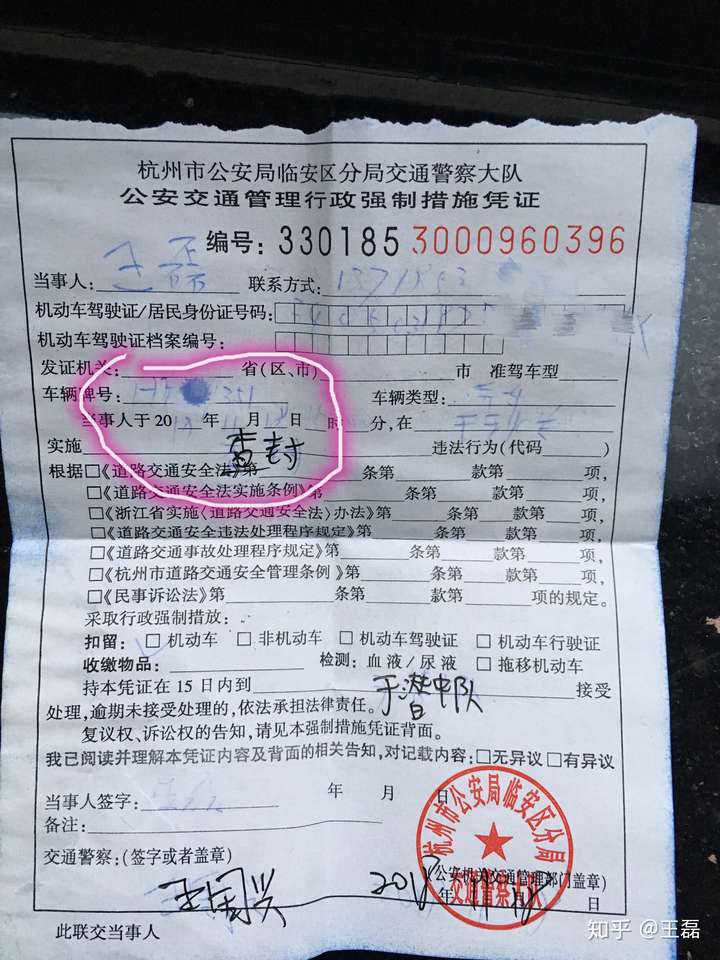 杭州市公安局临安区分局交通警察大队
公安交通管理行政强制措施凭证
编号：330185 3000960396
当事人：王磊 联系方式：
机动车驾驶证/居民身份证号码：
机动车驾驶证档案编号：
发证机关：省（区、市）市 准驾车型
车辆牌号：351 车辆类型：
当事人于20 年 月 日 时 分，在
实施 查封 违法行为（代码 ）
根据□《道路交通安全法》第 条第 款第 项，
□《道路交通安全法实施条例》第 条第 款第 项，
□《浙江省实施〈道路交通安全法〉办法》第 条第 款第 项，
□《道路交通安全违法处理程序规定》第 条第 款第 项，
□《道路交通事故处理程序规定》第 条第 款第 项，
□《杭州市道路交通安全管理条例》第 条第 款第 项，
□《民事诉讼法》第 条第 款第 项的规定。
采取行政强制措放：
扣留：□ 机动车 □ 非机动车 □ 机动车驾驶证 □ 机动车行驶证
收缴物品： 检测：血液/尿液 □ 拖移机动车
持本凭证在15日内到 于潜中队 接受
处理，逾期未接受处理的，依法承担法律责任。
复议权、诉讼权的告知，请见本强制措施凭证背面。
我已阅读并理解本凭证内容及背面的相关告知，对记载内容：□无异议□有异议
当事人签字： 年 月 日
备注：
交通警察：（签字或者盖章）
杭州市公安局临安区分局
交通警察大队
（公安机关交通管理部门盖章）
王国兴 年 月 日
此联交当事人
知乎 @王磊